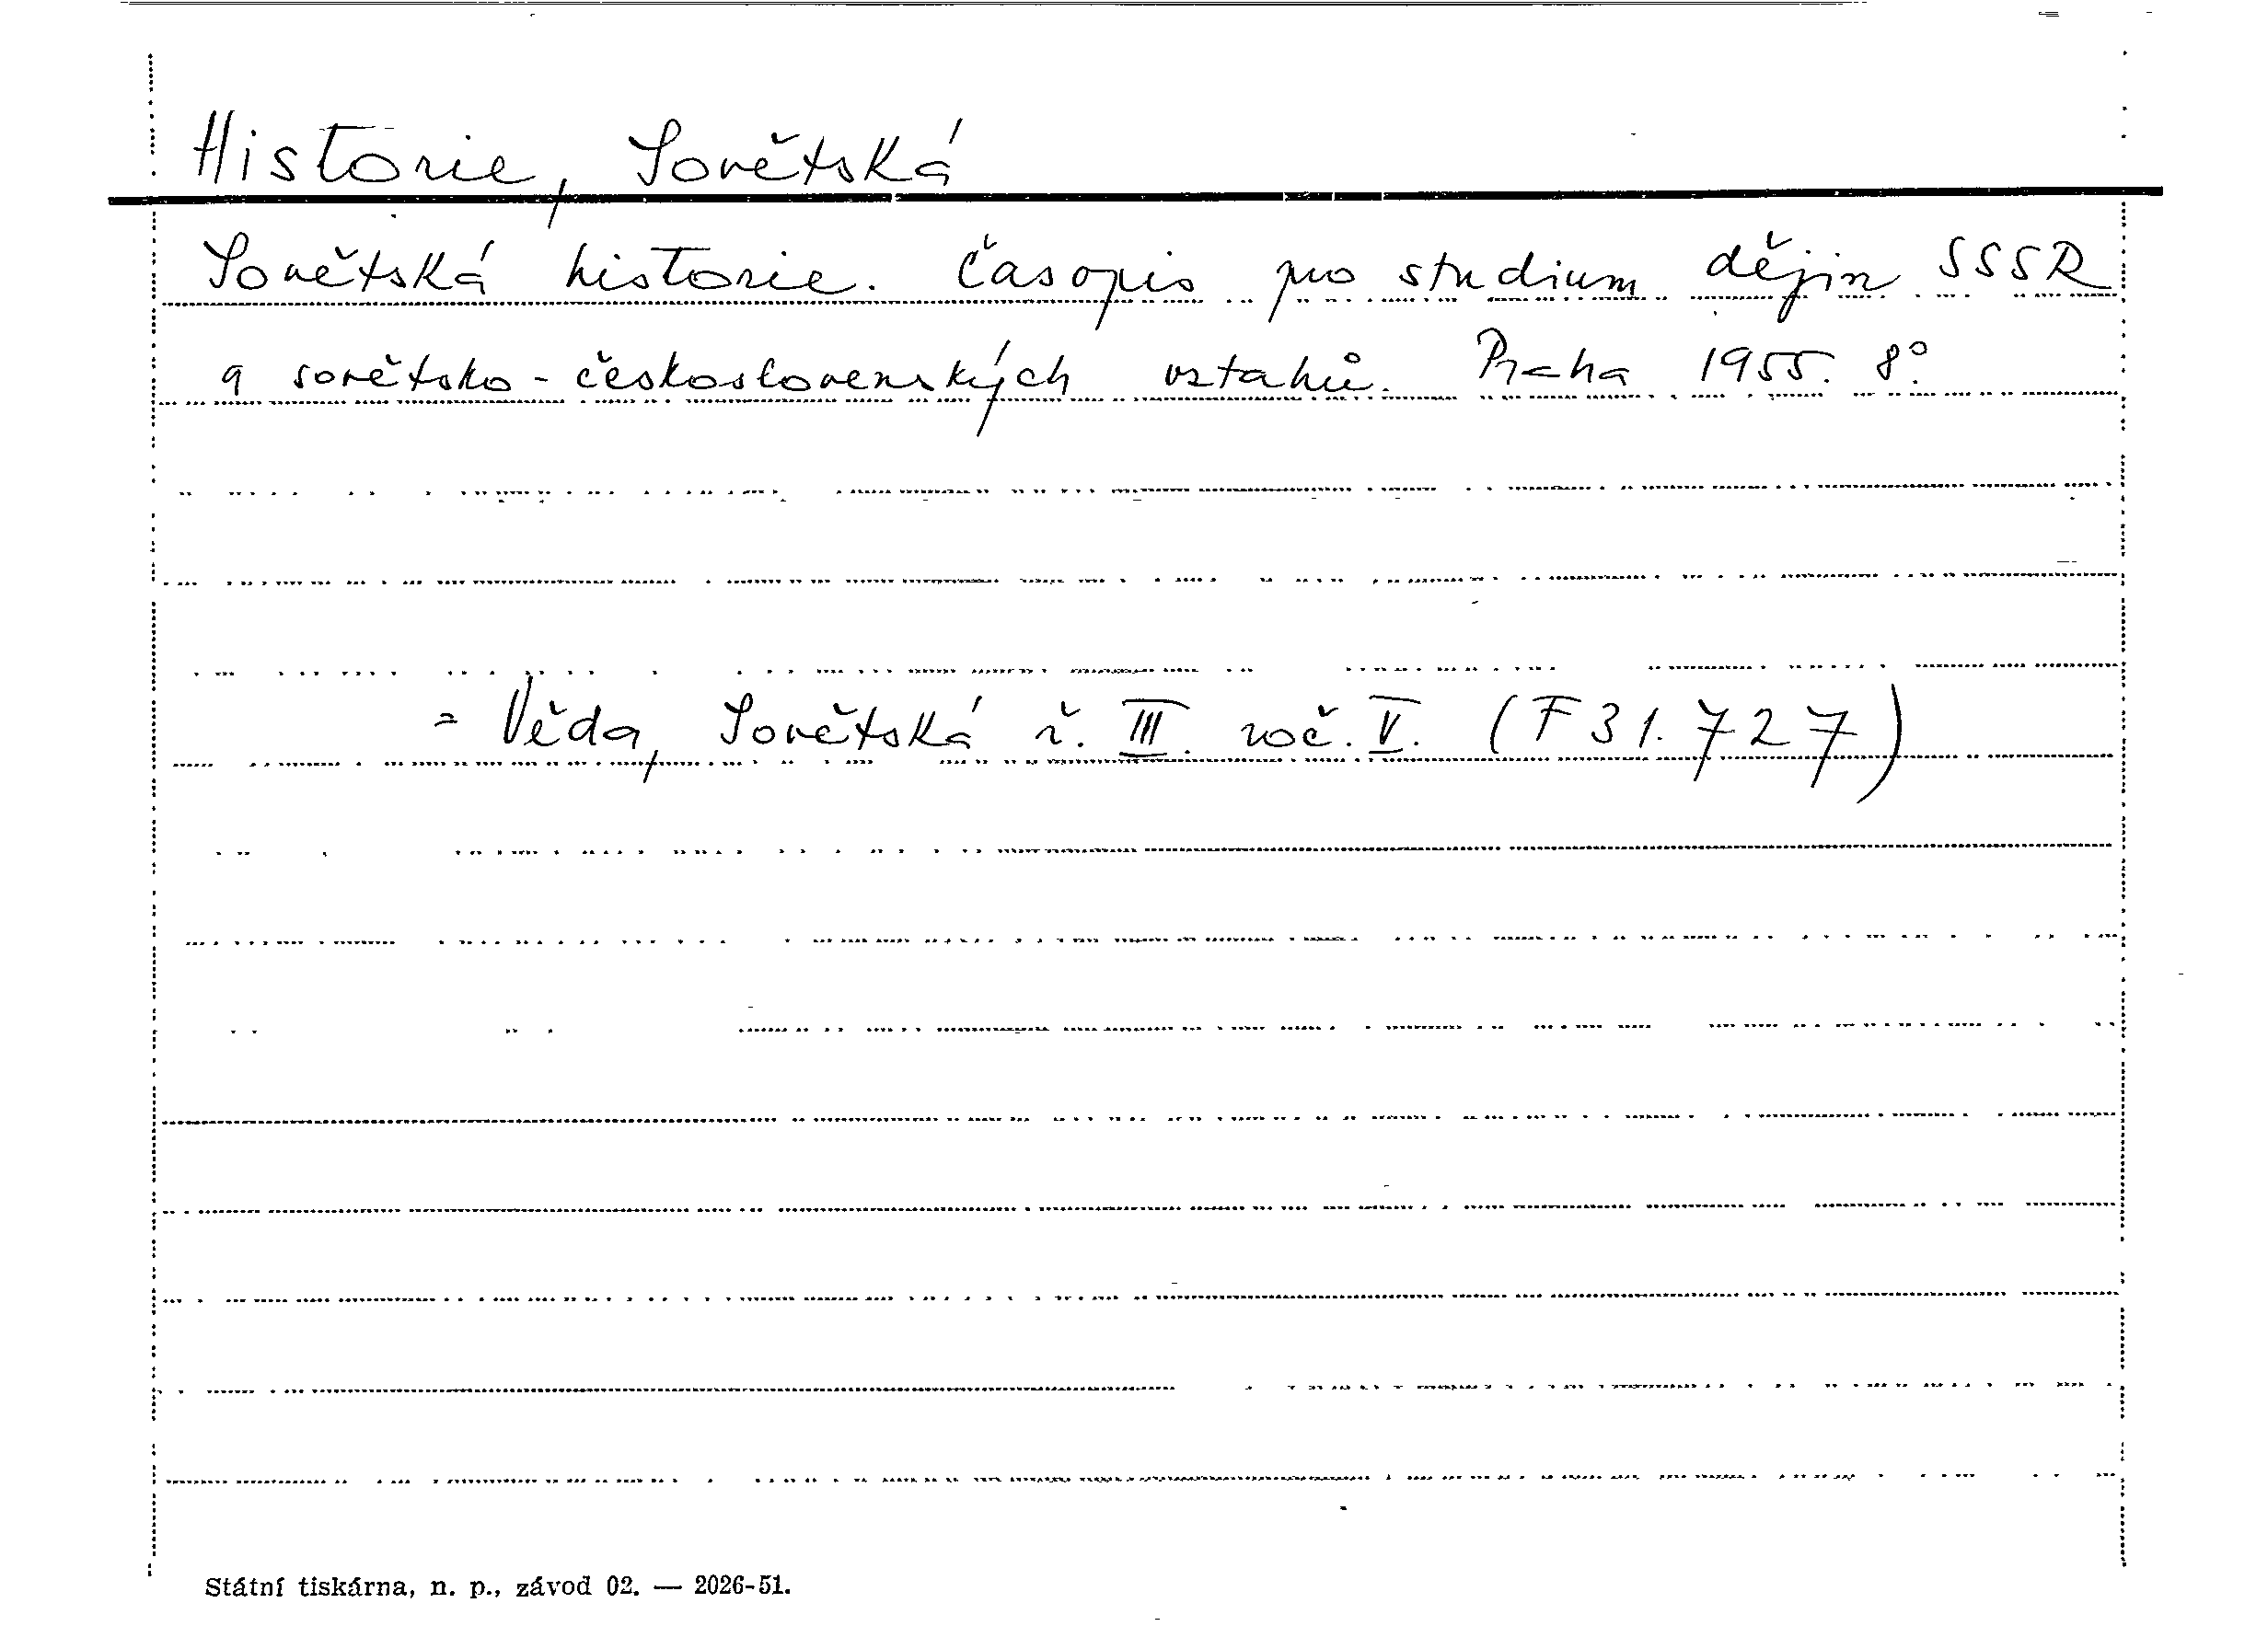 Historie, Sovětská
Sovětská historie. Časopis pro studium dějin SSSR
a sovětsko-československých vztahů. Praha 1955. 8°.
= Věda, Sovětská ř. III. roč. V. (F 31.727)
Státní tiskárna, n. p., závod 02. — 2026-51.